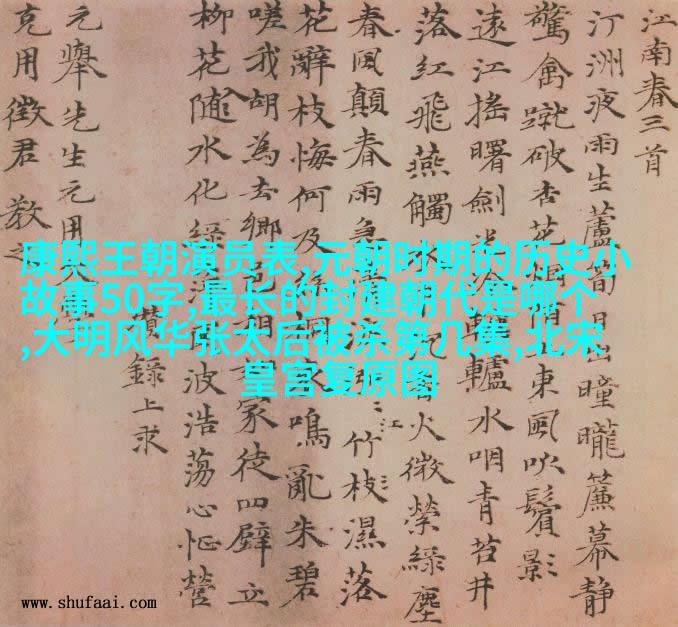 江南春三首
汀洲夜雨生蘆筍日曈曨簾幕靜
驚禽蹴破杏花烟東風吹鬢影
遠江搖曙劍轤水咽青苔井
落紅飛燕觸火微縈綠塵
春風顛春雨急江竹枝濕落
花辭枝悔何及鳴亂朱碧
嗟我胡為去鄉邑家徒四壁立
柳花隨水化綠波浩蕩心怔營
錄上求
元舉先生元用
克用徵君教
康熙王朝演员表,元朝时期的历史小
故事50字,最长的封建朝代是哪个
,大明风华张太后被杀第几集,北宋
皇宫复原图
www.shufaai.com